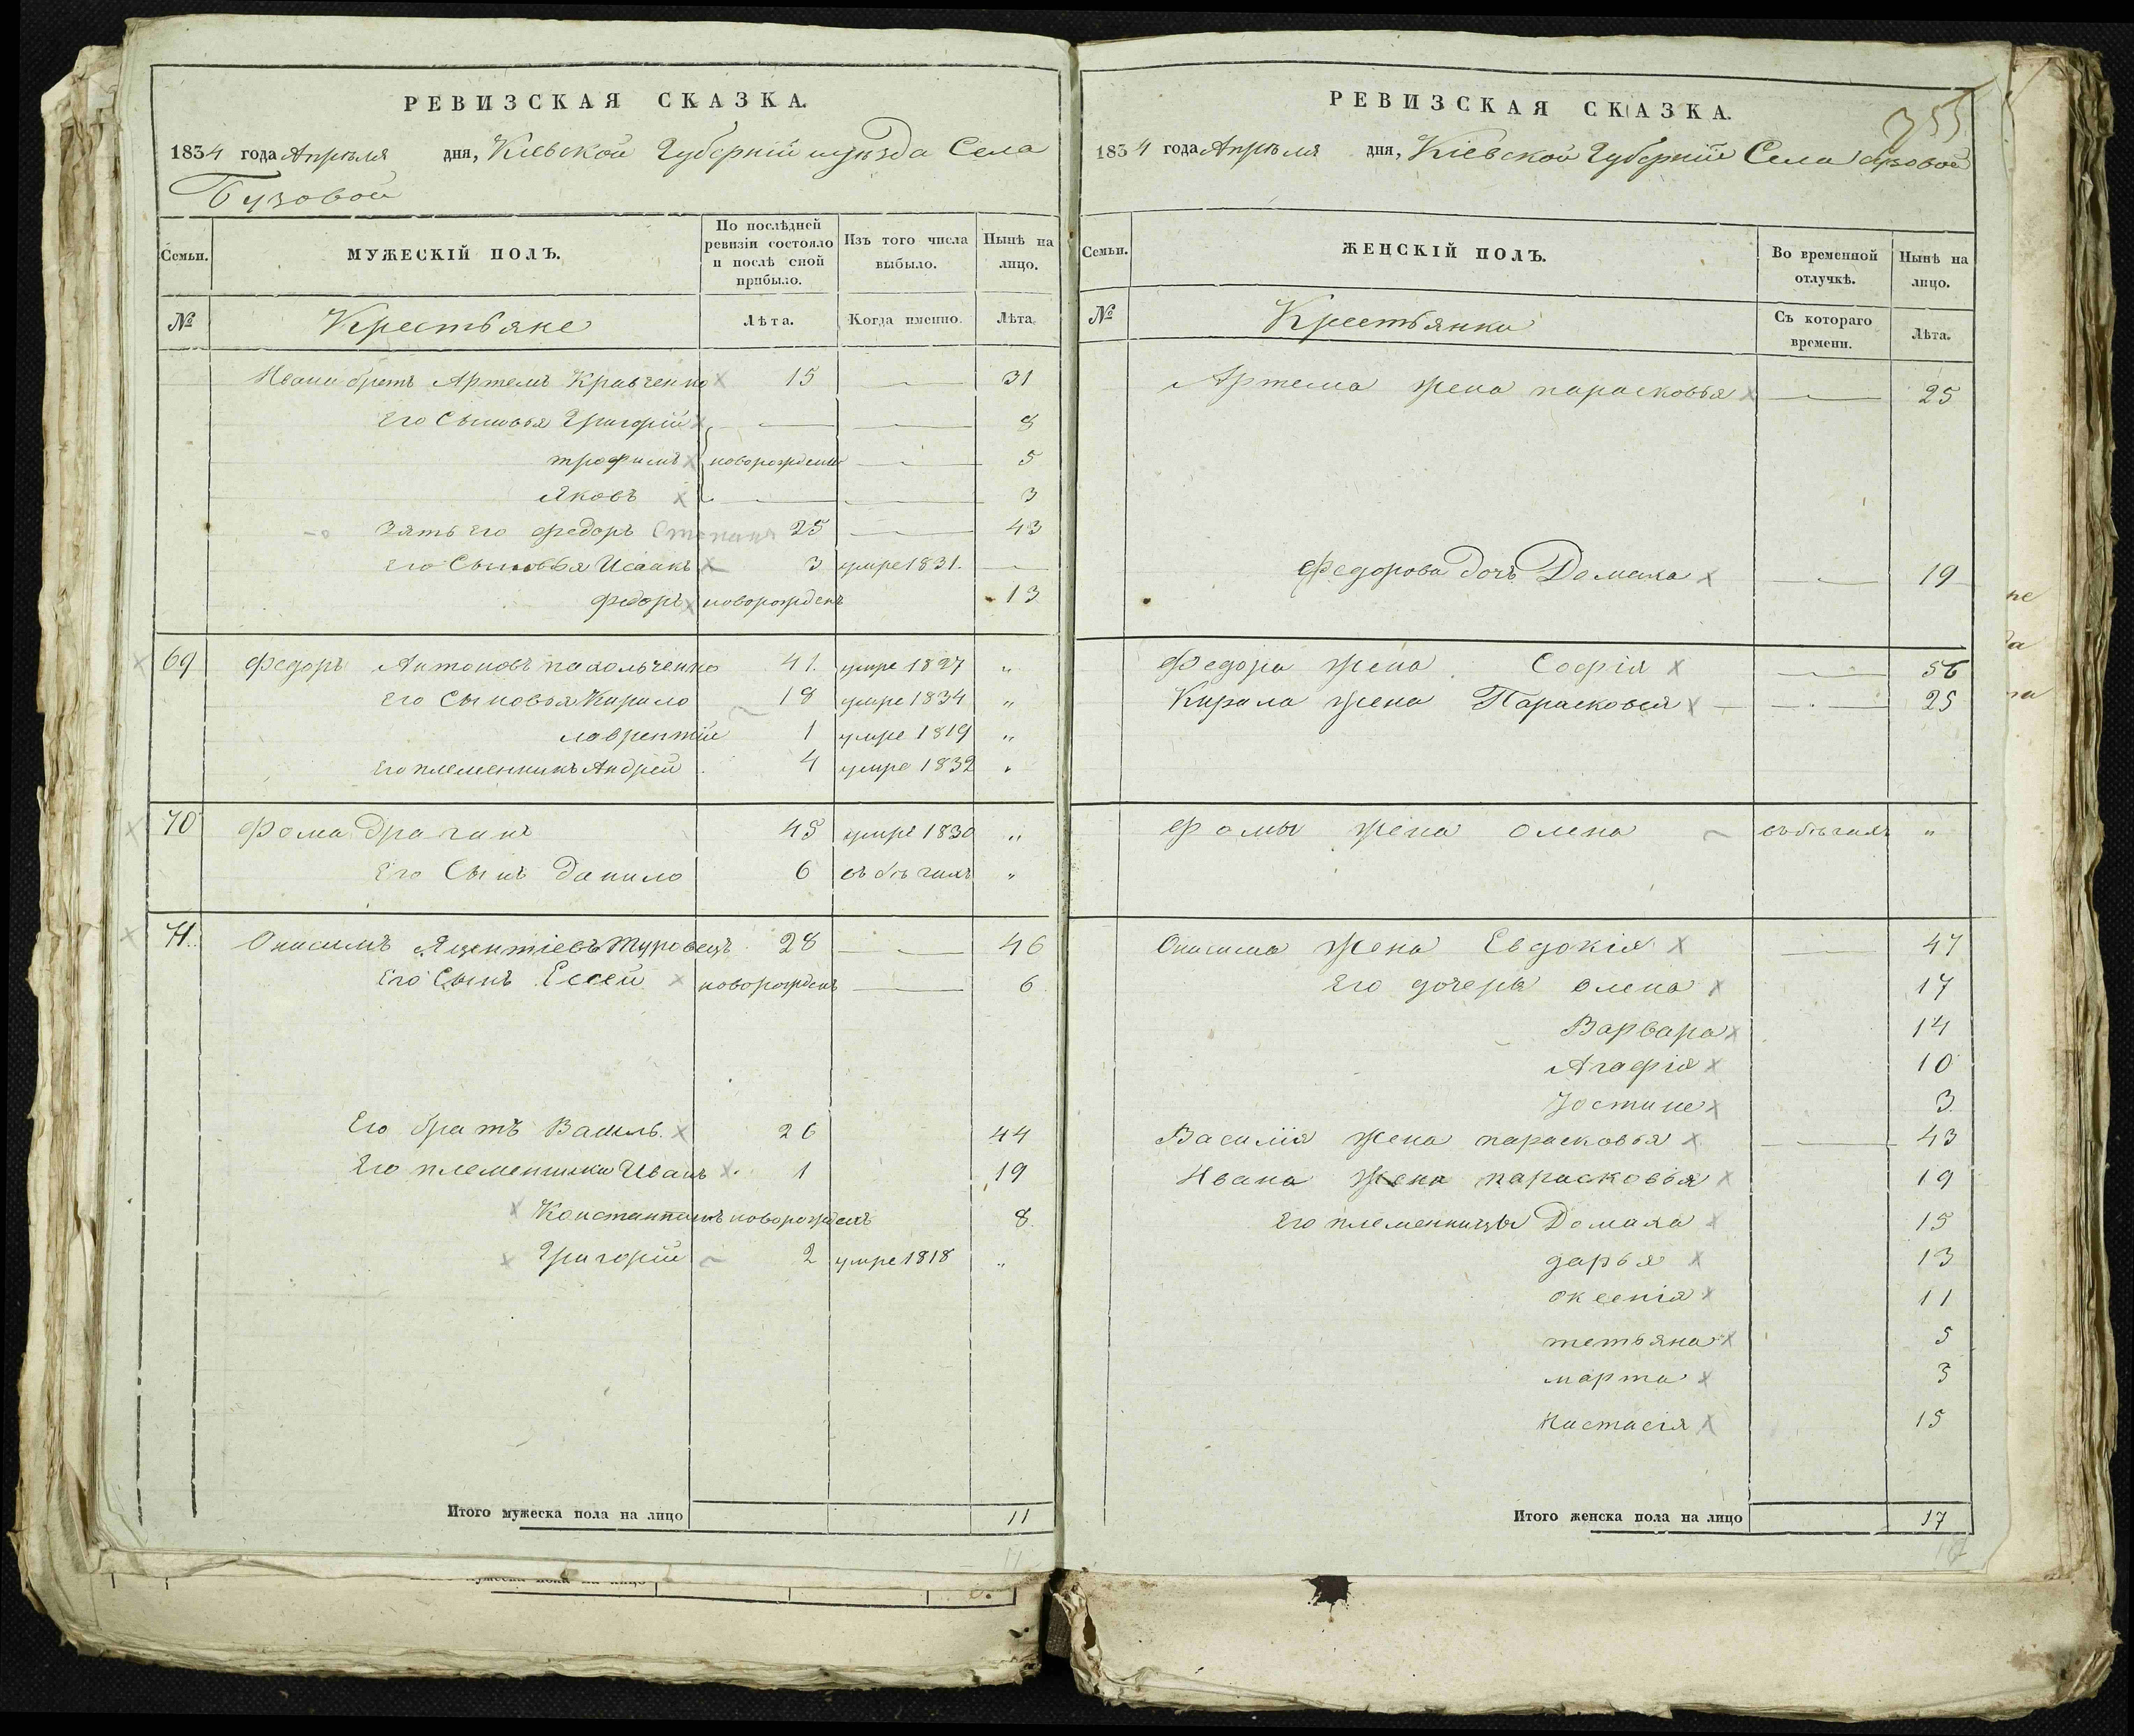 РЕВИЗСКАЯ СКАЗКА.
1834 года Апрѣля дня, Кіевской Губерніи и уѣзда Села
Бузовой
Семьи. МУЖЕСКІЙ ПОЛЪ. По послѣдней ревизіи состояло и послѣ оной прибыло. Изъ того числа выбыло. Нынѣ на лицо.
№ Крестьяне Лѣта. Когда именно. Лѣта.
Ивана братъ Артемъ Кравченко 15 — 31
Его Сыновья Григорій — — 8
трофимъ новорожденны — 5
Яковъ — — 3
Зять его Федоръ 25 — 43
Его Сыновья Исаакъ 3 умре 1831. —
Федоръ новорожденъ 13
69 Федоръ Антоновъ 41. умре 1827 „
Его Сыновья Кирило 18 умре 1834 „
лаврентій 1 умре 1819 „
Его племенникъ Андрей 4 умре 1832 „
70 Фома Драганъ 45 умре 1830 „
Его Сынъ Данило 6 въ бѣгахъ „
71. Онисимъ Туровецъ 28 — 46
Его Сынъ Ессей новорожденъ — 6
Его братъ Василь. 26 44
Его племенники Иванъ 1 19
Константинъ новорожденъ 8
Григорій 2 умре 1818 „
Итого мужеска пола на лицо 11
355
РЕВИЗСКАЯ СКАЗКА.
1834 года Апрѣля дня, Кіевской Губерніи Села Бузовой
Семьи. ЖЕНСКІЙ ПОЛЪ. Во временной отлучкѣ. Нынѣ на лицо.
№ Крестьянки Съ котораго времени. Лѣта.
Артема жена парасковья — 25
Федорова дочь Домаха — 19
Федора жена Софія — 56
Кирила жена Парасковья — 25
Фомы жена Олена въ бѣгахъ „
Онисима жена Евдокія — 47
Его дочеры Олена 17
Варвара 14
Агафія 10
Устине 3
Василія жена парасковья — 43
Ивана жена парасковья 19
Его племенницы Домаха 15
дарья 13
оксенія 11
тетьяна 5
марта 3
Настасія 15
Итого женска пола на лицо 17